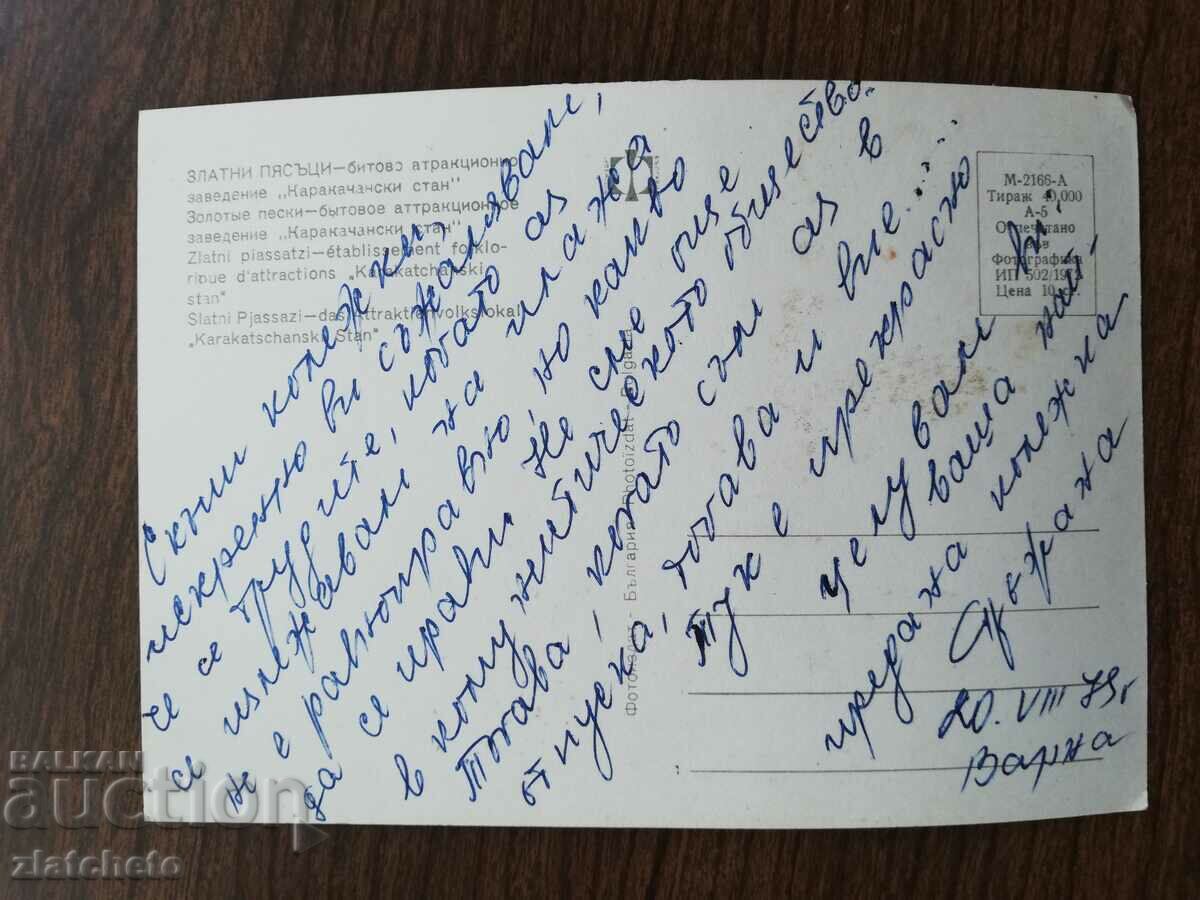 ЗЛАТНИ ПЯСЪЦИ—битово атракционно
заведение „Каракачански стан"
Золотые пески—бытовое аттракционное
заведение „Каракачански стан"
Zlatni piassatzi—établissement folklo-
rique d'attractions „Karakatchanski
stan"
Slatni Pjassazi—das Attraktionvolkslokal
„Karakatschanski Stan"
М-2166-А
Тираж 40,000
А-5
Отпечатано
във
Фотографика
ИП 502/197
Цена 10 ст.
Фотоиздат - България Photoizdat - Bulgaria
Скъпи колежки,
искренно ви съжалявам,
че се трудите, когато аз
се излежавам на плажа
не е равноправно но какво
да се прави. Не сме още
в комунистическото общество.
Тогава, когато съм аз в
отпуска, тогава и вие......
Тук е прекрасно
целувам ви:
ваша най-
предана колежка
Стържана
20. VIII 79 г
Варна
BALKAN
auction
zlatcheto